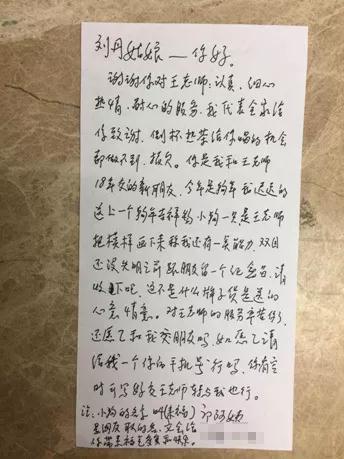 刘丹姑娘——你好。
谢谢你对王老师,认真,细心
热情,耐心的服务,我代表全家给
你致谢,倒杯热茶给你喝的机会
都做不到,报欠。你是我和王老师
18年交的新朋友,今年是狗年我送送的
送上一个狗年吉祥物小狗一只是王老师
把模样画下来称我还有一点能力双目
还没失明之前跟朋友留个纪念品,请
收下吧 这不是什么牌子货是送的
心意情意。对王老师的服务辛苦你了
还愿乙和我交朋友吗,如愿乙请
给我一个你的手机号行吗,你有空
时可写好交王老师转与我也行。
注:小狗的名字叫(来福) 邵阿姨
是网友取的名,它会给
你带来福气